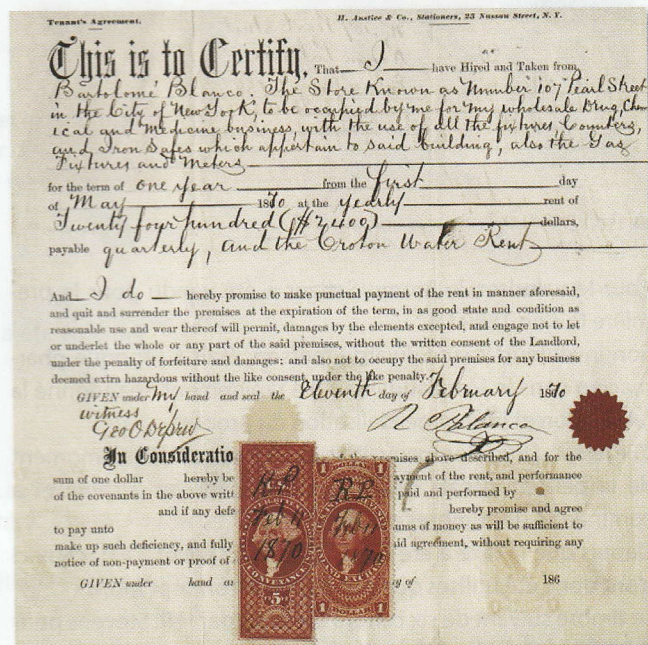 Tenant's Agreement.
H. Anstice & Co., Stationers, 23 Nassau Street, N. Y.
This is to Certify, That I have Hired and Taken from
Bartolomé Blanco. The Store Known as Number 107 Pearl Street
in the City of New York, to be occupied by me for my wholesale Drug, Chem
ical and Medicine business, with the use of all the fixtures, Counters,
and Iron Safes which appertain to said building, also the Gas
Fixtures and Meters
for the term of one year from the first day
of May 1870 at the yearly rent of
Twenty four hundred ($2,400) dollars,
payable quarterly, and the Croton Water Rent
And I do hereby promise to make punctual payment of the rent in manner aforesaid,
and quit and surrender the premises at the expiration of the term, in as good state and condition as
reasonable use and wear thereof will permit, damages by the elements excepted, and engage not to let
or underlet the whole or any part of the said premises, without the written consent of the Landlord,
under the penalty of forfeiture and damages; and also not to occupy the said premises for any business
deemed extra hazardous without the like consent, under the like penalty.
GIVEN under my hand and seal the Eleventh day of February 1870
witness
Geo O
R
In Consideratio premises above described, and for the
sum of one dollar hereby be payment of the rent, and performance
of the covenants in the above writt paid and performed by
and if any defa hereby promise and agree
to pay unto sums of money as will be sufficient to
make up such deficiency, and fully aid agreement, without requiring any
notice of non-payment or proof of
GIVEN under hand an y of 186
R.P.
Feb 11
1870
CONVEYANCE
5
R.P.
Feb 11
1870
1
1
DOLLAR
1